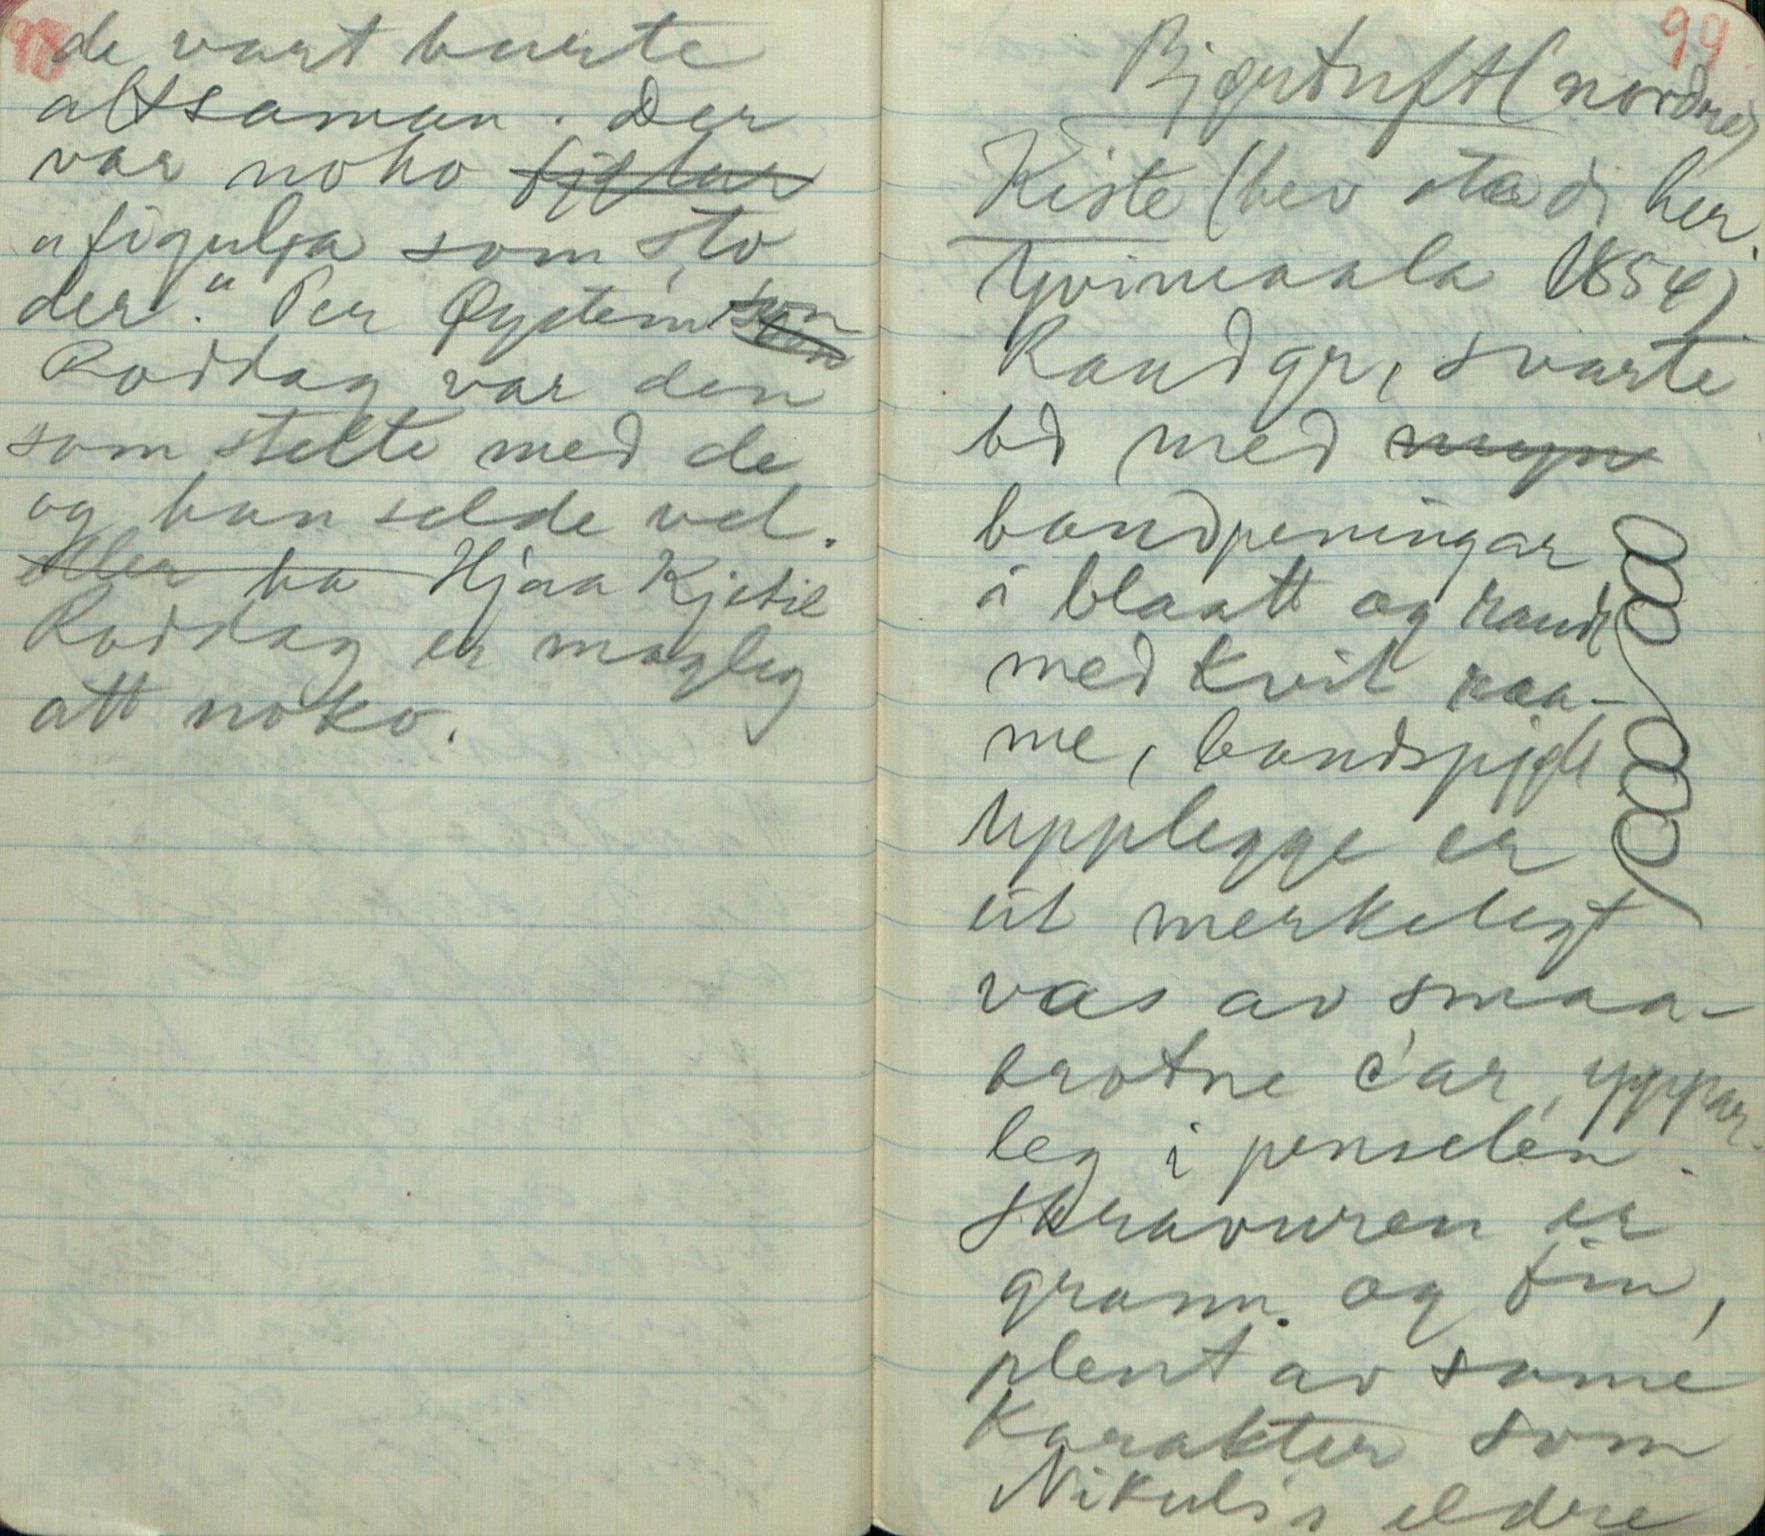 98
de vart burte
altsaman. Der
var noko fjølar
"figulja som sto
der." Per Øysteinsson
Roddag var den
som stelte med de
og han selde vel.
eller ha Hjaa Kjetil
Roddag er mogleg
att noko.
99
Bjørtuft (nordre)
Kiste (hev stad i her.
Yvimaala 1854)
Raudgr, svarte
bd med
bandpeningar
i blaatt og raudt
med kvit raa-
me, bandspjøld
Upplegge er
eit merkelegt
vas av smaa-
brotne c'ar, yppar-
leg i penselen.
Skravuren er
grann. og fin,
plent av same
Karakter som
Nikuls eldre